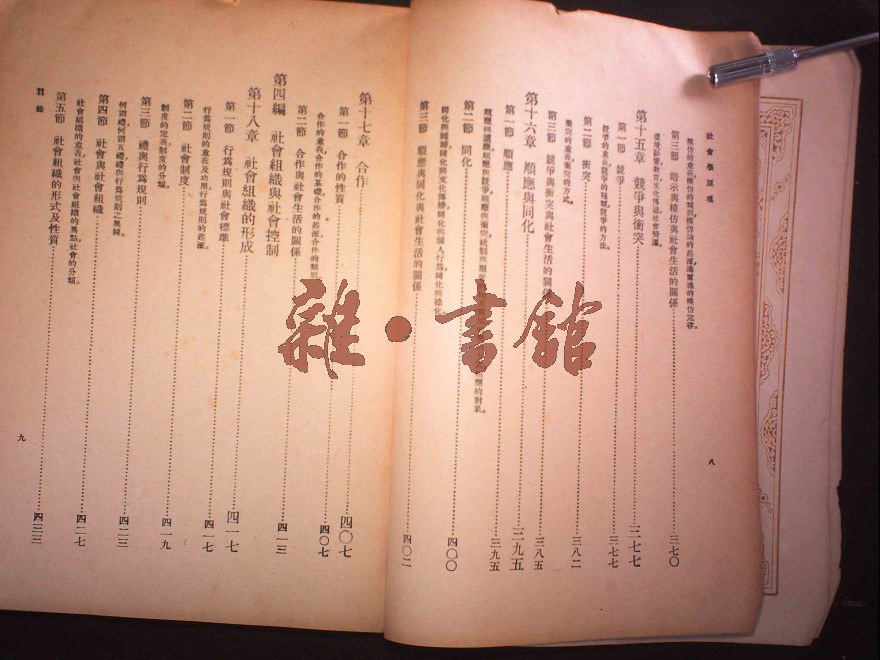 社會學原理
第三節 暗示與模仿與社會生活的關係 三七〇
第十五章 競爭與衝突 三七七
第一節 競爭 三七七
競爭的意義競爭的種類競爭的方法。
第二節 衝突 三八二
衝突的意義衝突的方式。
第三節 競爭與衝突與社會生活的關係 三八五
第十六章 順應與同化 三九五
第一節 順應 三九五
第二節 同化 四〇〇
第三節 順應與同化與社會生活的關係 四〇二
八
第十七章 合作 四〇七
第一節 合作的性質 四〇七
合作的意義合作的基礎合作的起源合作的類別
第二節 合作與社會生活的關係 四一三
第四編 社會組織與社會控制
第十八章 社會組織的形成 四一七
第一節 行爲規則與社會標準 四一七
行爲規則的意義及功用行爲規則的起源。
第二節 社會制度 四一九
制度的定義制度的分類。
第三節 禮與行爲規則 四二三
何謂禮何謂五禮禮與行爲規則之異同。
第四節 社會與社會組織 四二七
社會組織的意義社會與社會組織的異點社會的分類。
第五節 社會組織的形式及性質 四三三
目錄
九
雜·書館